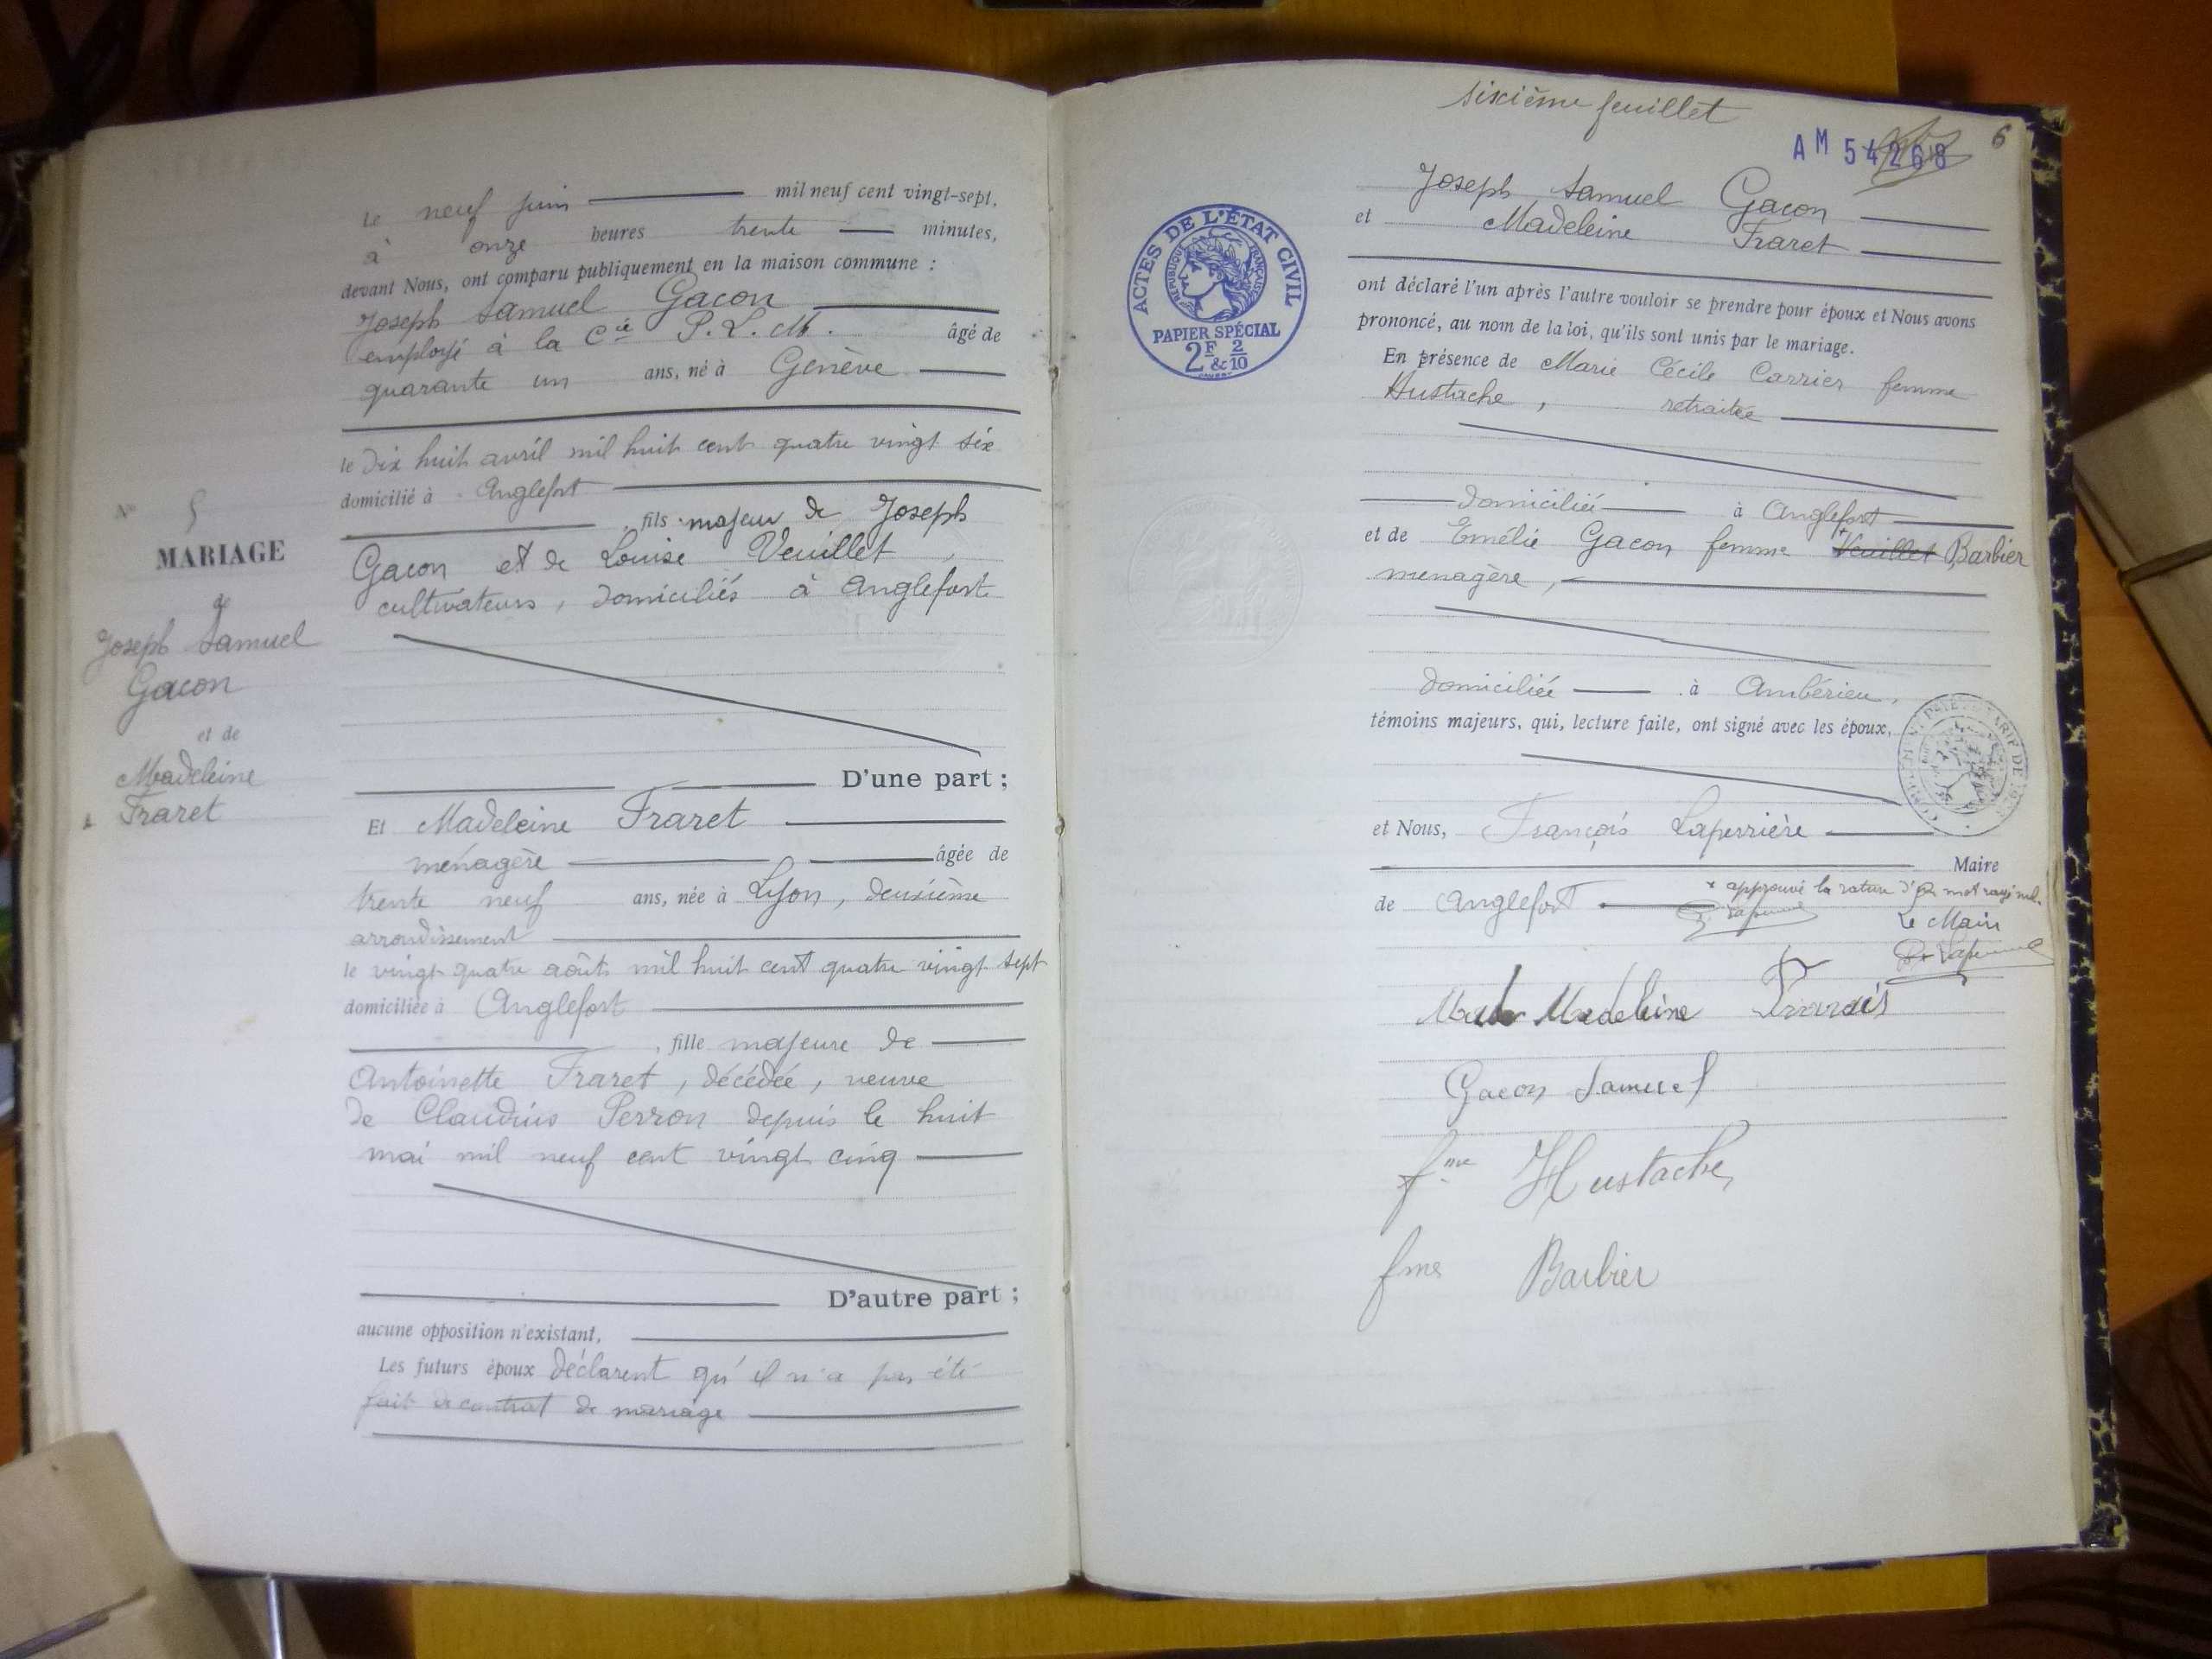 Le neuf juin mil neuf cent vingt-sept,
à onze heures trente minutes,
devant Nous, ont comparu publiquement en la maison commune :
Joseph Samuel Gacon
employé à la Cie P.L.M. âgé de
quarante un ans, né à Genève
le dix huit avril mil huit cent quatre vingt six
domicilié à Anglefort
, fils majeur de Joseph
Gacon et de Louise Veuillet,
cultivateurs, domiciliés à Anglefort
D'une part ;
Et Madeleine Fraret
ménagère âgée de
trente neuf ans, née à Lyon, deuxième
arrondissement
le vingt quatre août mil huit cent quatre vingt sept
domiciliée à Anglefort
, fille majeure de
Antoinette Fraret, décédée, veuve
de Claudius Perron depuis le huit
mai mil neuf cent vingt cinq
D'autre part ;
aucune opposition n'existant,
Les futurs époux déclarent qu'il n'a pas été
fait de contrat de mariage
N° 5
MARIAGE
de
Joseph Samuel
Gacon
et de
Madeleine
Fraret
sixième feuillet
6
AM 54268
ACTES DE L'ÉTAT CIVIL
RÉPUBLIQUE FRANÇAISE
PAPIER SPÉCIAL
2F & 2/10
Joseph Samuel Gacon
et Madeleine Fraret
ont déclaré l'un après l'autre vouloir se prendre pour époux et Nous avons
prononcé, au nom de la loi, qu'ils sont unis par le mariage.
En présence de Marie Cécile Carrier femme
Hustache, retraitée
domiciliée à Anglefort
et de Emélie Gacon femme Veuillet Barbier
menagère,
domiciliée à Ambérieu,
témoins majeurs, qui, lecture faite, ont signé avec les époux,
et Nous, François Laperrière
Maire
de Anglefort
x approuvé la rature d'un mot rayé nul.
Le Maire
Madeleine
Gacon Samuel
fme Hustache
fme Barbier